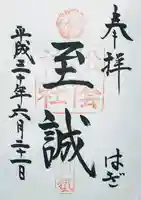 奉拝
はぎ
至誠
平成三十年六月二十一日